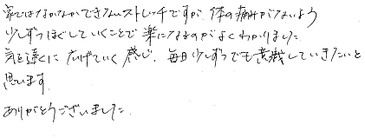 家ではなかなかできないストレッチですが、体の痛みがないよう
少しずつほぐしていくことで楽になるのがよくわかりました
気を遠くに広げていく感じ、毎日少しずつでも意識していきたいと
思います。
ありがとうございました。